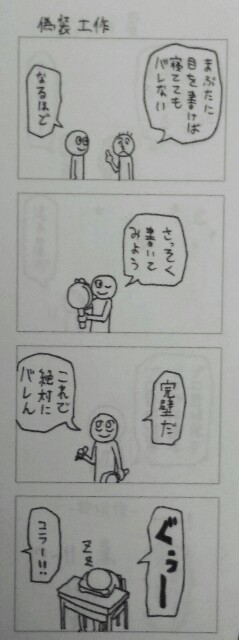 偽装工作
まぶたに
目を書けば
寝てても
バレない
なるほど
さっそく
書いて
みよう
完璧だ
これで
絶対に
バレん
ぐぅー
zz
コラー!!